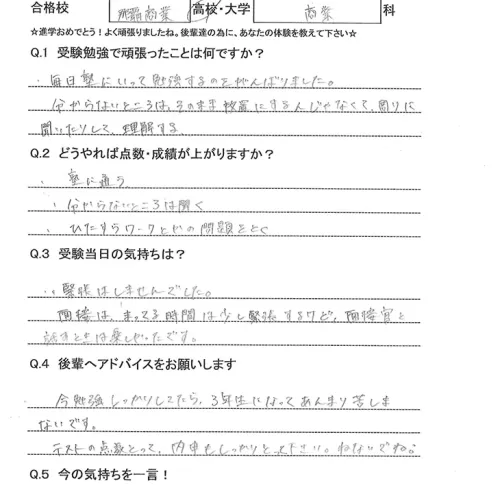 合格校 那覇商業 高校・大学 商業 科
☆進学おめでとう！よく頑張りましたね。後輩達の為に、あなたの体験を教えて下さい☆
Q.1 受験勉強で頑張ったことは何ですか？
・毎日塾にいって勉強するのをがんばりました。
分からないところは、そのまま放置にするんじゃなくて、周りに
聞いたりして、理解する。
Q.2 どうやれば点数・成績が上がりますか？
・塾に通う
・分からないところは聞く
・ひたすらワークとかの問題をとく
Q.3 受験当日の気持ちは？
・緊張はしませんでした。
面接は、まってる時間は少し緊張するけど、面接官と
話すときは楽しかったです。
Q.4 後輩へアドバイスをお願いします
今勉強しっかりしてたら、3年生になってあんまり苦しま
ないです。
テストの点数とって、内申もしっかりとって下さい。
Q.5 今の気持ちを一言！